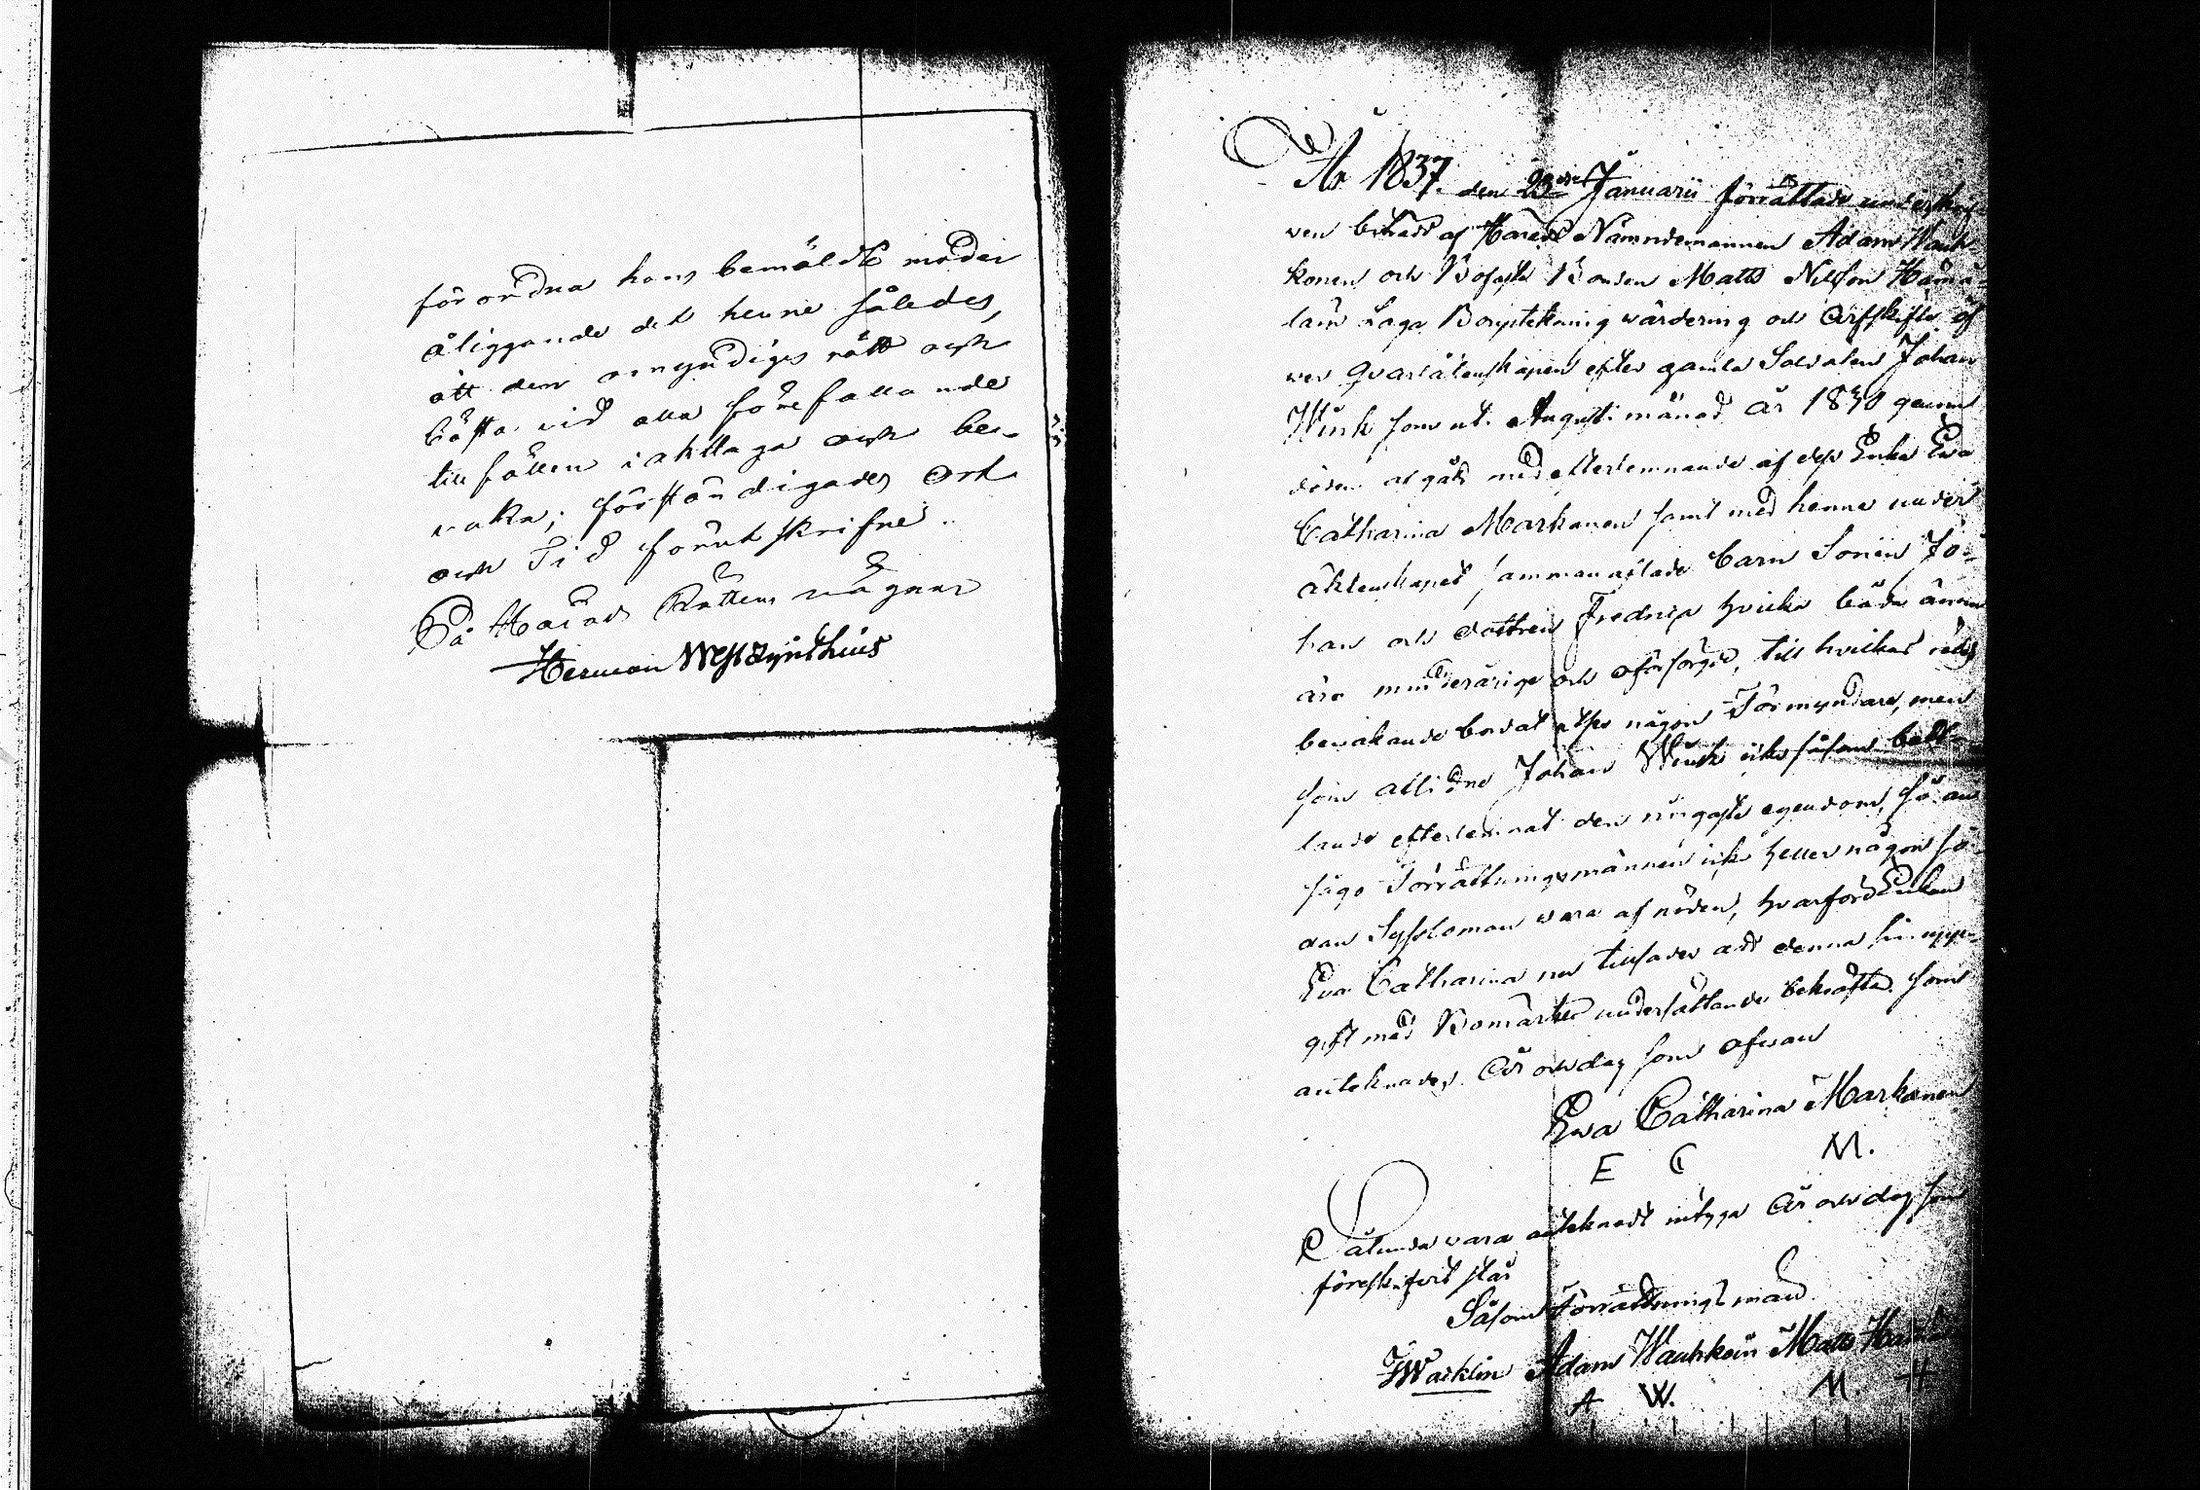 förordna hans bemälde moder
åliggande det henne således,
att den omyndiges rätt och
bästa vid alla förefallande
tillfällen iakttaga och be-
vaka; förständigades Ort
och Tid förut skrifne.
På Härads Rättens vägnar
Herman Westzynthius
År 1837. den 23dje Januarii förrättade underskref-
ven biträdd af Härads Nämndemannen Adam Wauh-
konen och Bofaste Bonden Matts Nilsson Hämä-
läin Laga Bouptekning wärdering och Arfskifte öf-
wer Qvarlåtenskapen efter gamla Soldaten Johan
Wink som uti Augusti månad år 1830 genom
döden afgått med efterlemnande af dess Enka Ewa
Catharina Markanen samt med henne under
äktenskapet sammanaflade barn Sonen Jo-
han och dottren Fredrica hvilka båda ännu
äro minderårige och oförsörgde, till hvilkas rätts
bewakande bordat utses någon Förmyndare, men
som aflidne Johan Wink icke såsom bått-
lande efterlemnat den ringaste egendom, så an
sågo Förrättningsmännen icke heller någon så-
dan Syssloman wara af nöden, hvarförd Enkan
Ewa Catharina nu tillsades att denna sin upp-
gift med Bomärke undersättande bekräfta som
anteknades. År och dag som ofwan
Ewa Catharina Markanen
E C M.
Sålunda vara anteknadt intyga År och dag som
föreskrifvit står
Såsom Förrättningsmän
JWacklin Adam Wauhkoin Matts
A W. M. H